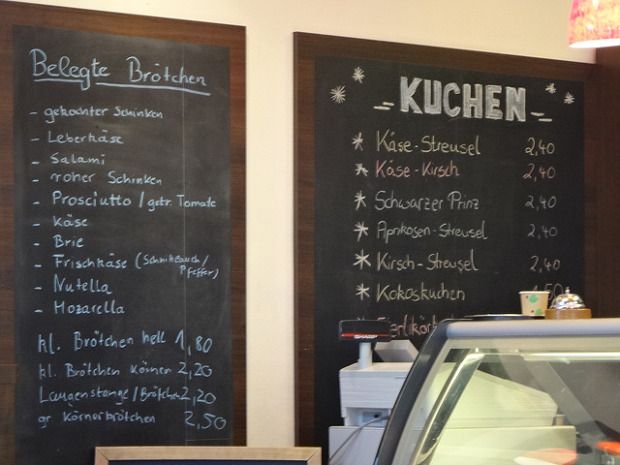 Belegte Brötchen
- gekochter Schinken
- Leberkäse
- Salami
- roher Schinken
- Prosciutto / getr. Tomate
- Käse
- Brie
- Frischkäse (Schnittlauch/
Pfeffer)
- Nutella
- Mozarella
kl. Brötchen hell 1,80
kl. Brötchen Körner 2,20
Laugenstange/Brötchen 2,20
gr Körnerbrötchen 2,50
- KUCHEN -
* Käse-Streusel 2,40
* Käse-Kirsch 2,40
* Schwarzer Prinz 2,40
* Aprikosen-Streusel 2,40
* Kirsch-Streusel 2,40
* Kokoskuchen 50
SHARP